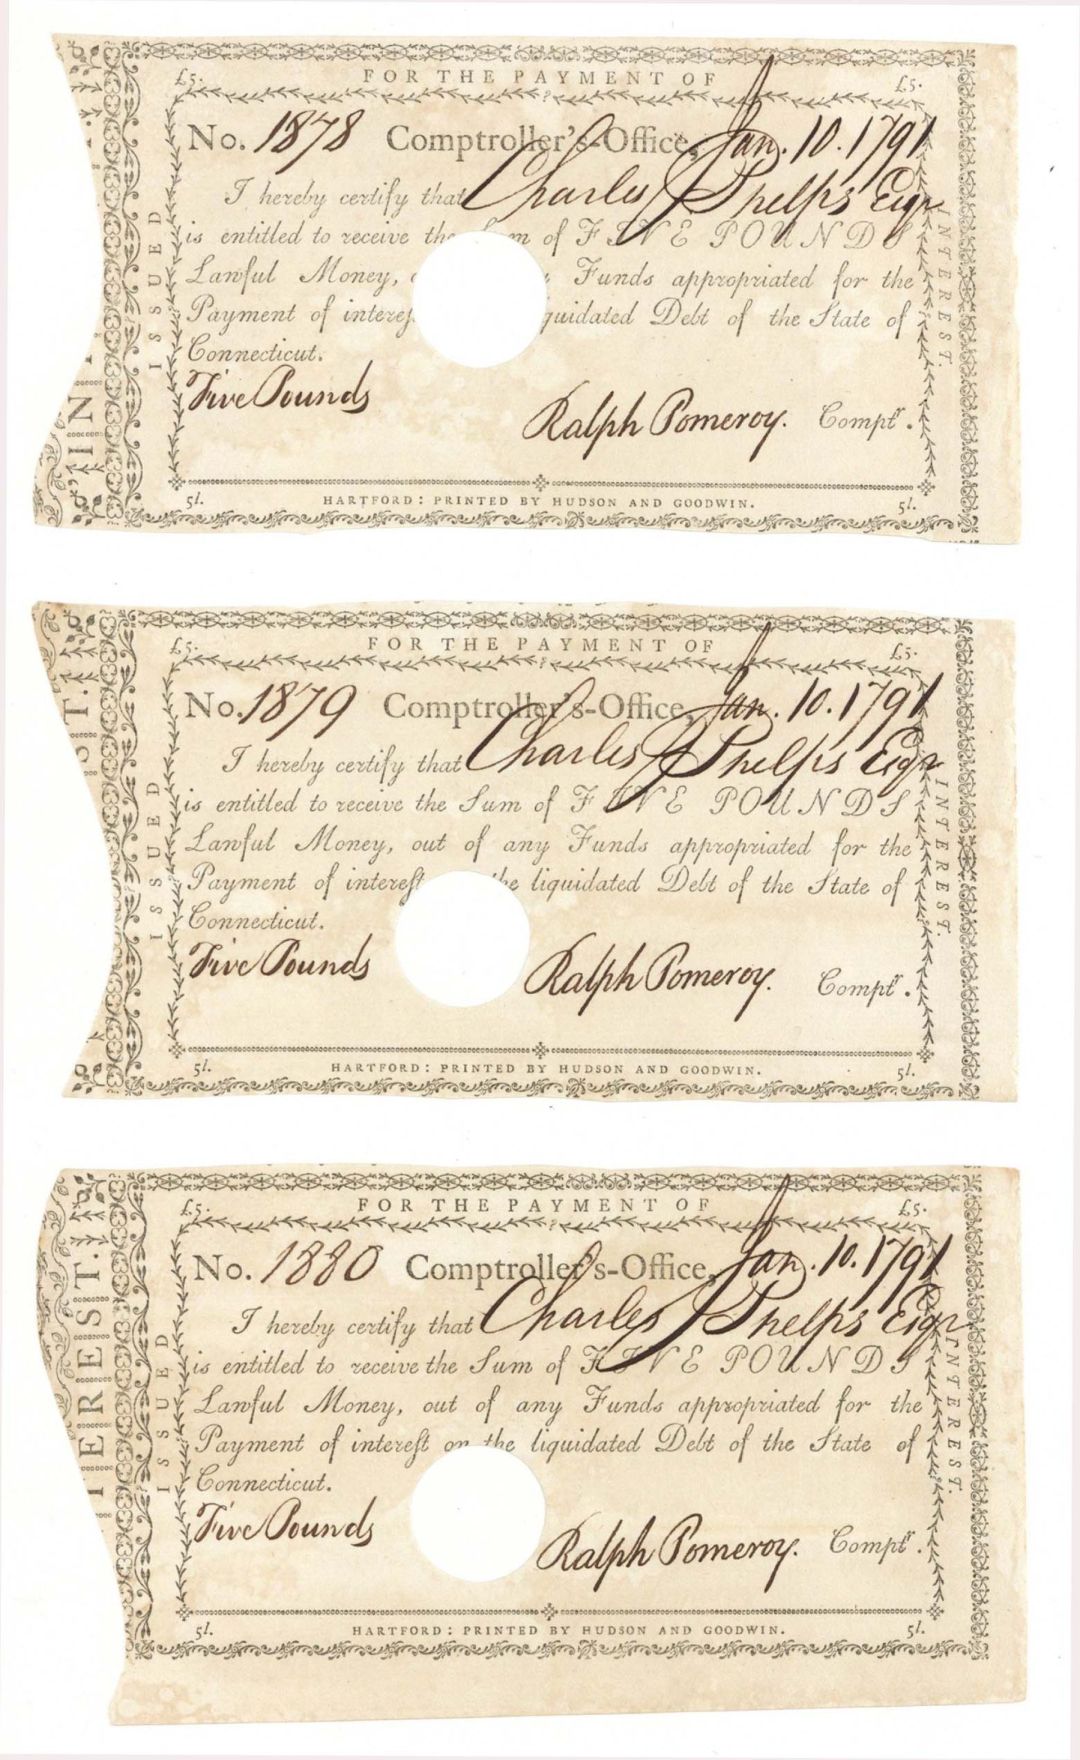 £5. FOR THE PAYMENT OF £5.
No. 1878 Comptroller's-Office, Jan. 10. 1791
I hereby certify that Charles Phelps Esqr
is entitled to receive the Sum of FIVE POUNDS
Lawful Money, Funds appropriated for the
Payment of interest liquidated Debt of the State of
Connecticut.
Five Pounds
Ralph Pomeroy. Comptr.
5l. HARTFORD: PRINTED BY HUDSON AND GOODWIN. 5l.
ISSUED
INTEREST.
IN
£5. FOR THE PAYMENT OF £5.
No. 1879 Comptroller's-Office, Jan. 10. 1791
I hereby certify that Charles Phelps Esqr
is entitled to receive the Sum of FIVE POUNDS
Lawful Money, out of any Funds appropriated for the
Payment of interest the liquidated Debt of the State of
Connecticut.
Five Pounds
Ralph Pomeroy. Comptr.
5l. HARTFORD: PRINTED BY HUDSON AND GOODWIN. 5l.
ISSUED
INTEREST.
ST.
£5. FOR THE PAYMENT OF £5.
No. 1880 Comptroller's-Office, Jan. 10. 1791
I hereby certify that Charles Phelps Esqr
is entitled to receive the Sum of FIVE POUNDS
Lawful Money, out of any Funds appropriated for the
Payment of interest on the liquidated Debt of the State of
Connecticut.
Five Pounds
Ralph Pomeroy. Comptr.
5l. HARTFORD: PRINTED BY HUDSON AND GOODWIN. 5l.
ISSUED
INTEREST.
TEREST.